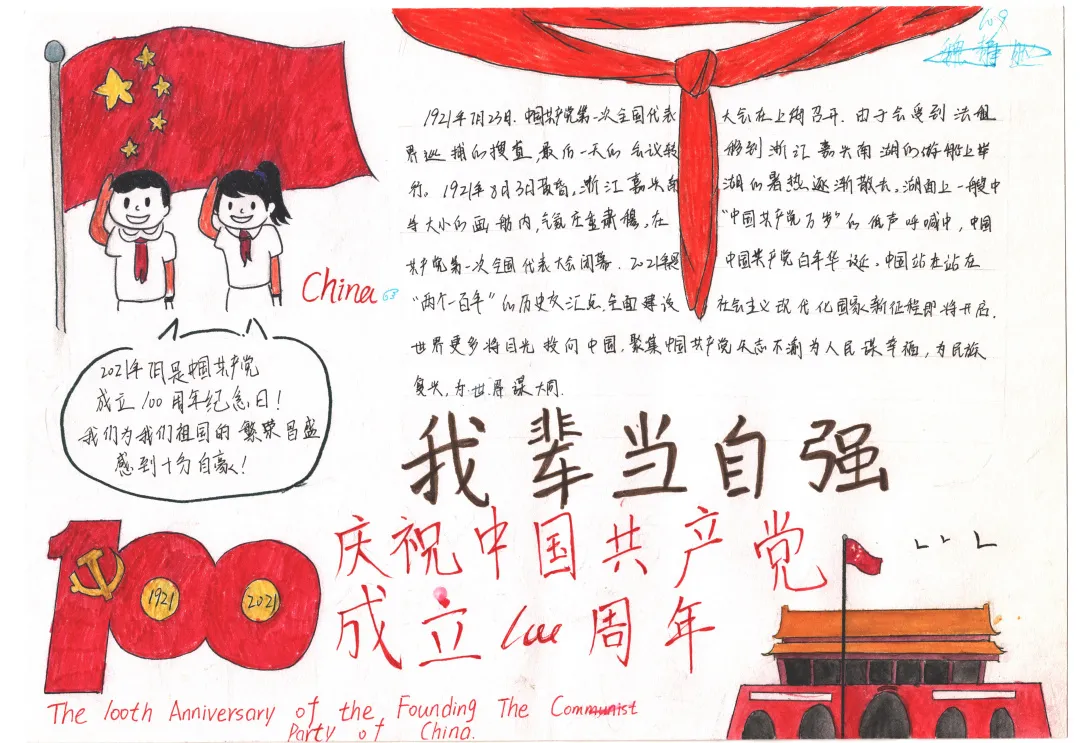 609
China
1921年7月23日.中国共产党第一次全国代表大会在上海召开.由于会受到法租
界巡捕的搜查,最后一天的会议转移到浙江嘉兴南湖的游船上举
行。1921年8月3日黄昏,浙江嘉兴南湖的暑热逐渐散去,湖面上一艘中
等大小的画舫内,气氛庄重肃穆,在“中国共产党万岁”的低声呼喊中,中国
共产党第一次全国代表大会闭幕.2021年 中国共产党百年华诞。中国站在站在
“两个一百年”的历史交汇点.全面建设社会主义现代化国家新征程即将开启.
世界更多将目光投向中国,聚集中国共产党矢志不渝为人民谋幸福,为民族
复兴,为世界谋大同.
2021年7月是中国共产党
成立100周年纪念日!
我们为我们祖国的繁荣昌盛
感到十分自豪!
我辈当自强
庆祝中国共产党
成立100周年
100
1921
2021
The 100th Anniversary of the Founding The Communist
Party of China.